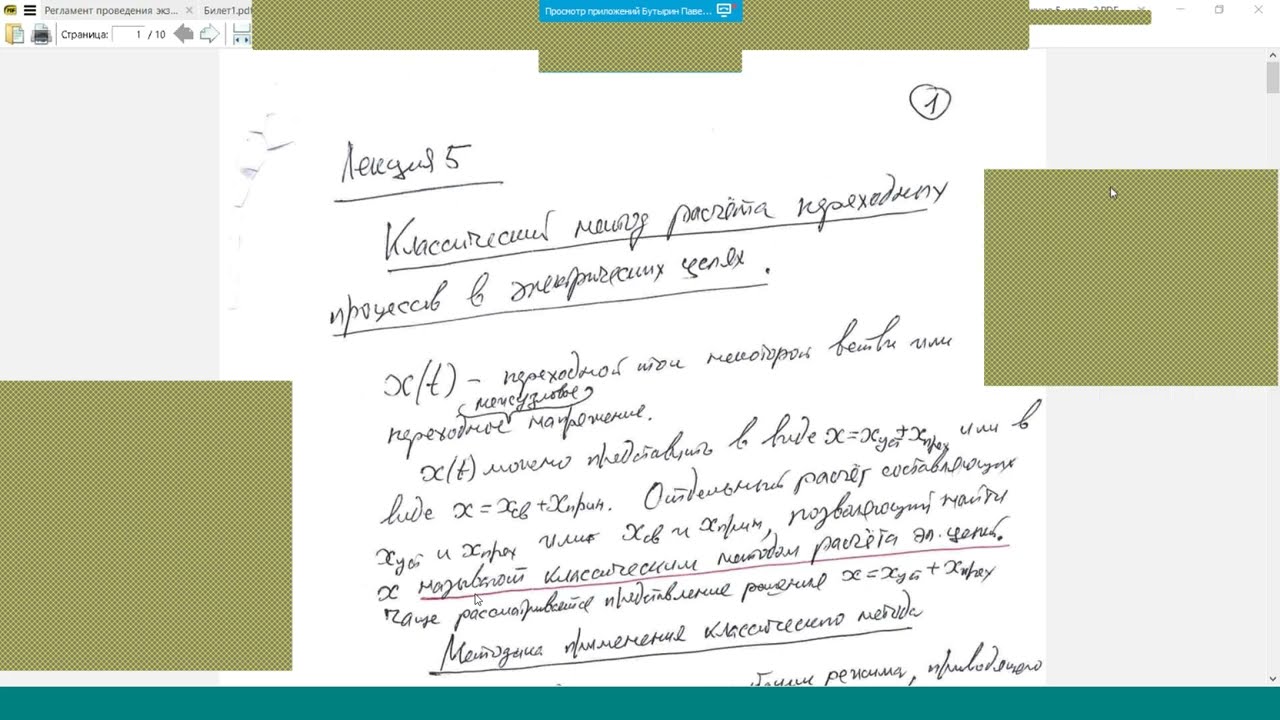 Регламент проведения экз...
Билет1.pdf
Просмотр приложений Бутырин Паве...
Страница: 1 / 10
1
Лекция 5
Классический метод расчёта переходных
процессов в электрических цепях.
x(t) – переходной ток некоторой ветви или
(межузловое)
переходное напряжение.
x(t) можно представить в виде x = xуст + xпрех или в
виде x = xсв + xприн. Отдельный расчёт составляющих
xуст и xпрех или xсв и xприн, позволяющий найти
x называют классическим методом расчёта эл. цепей.
Чаще рассматривается представление решения x = xуст + xпрех
Методика применения классического метода
режима, приводящего